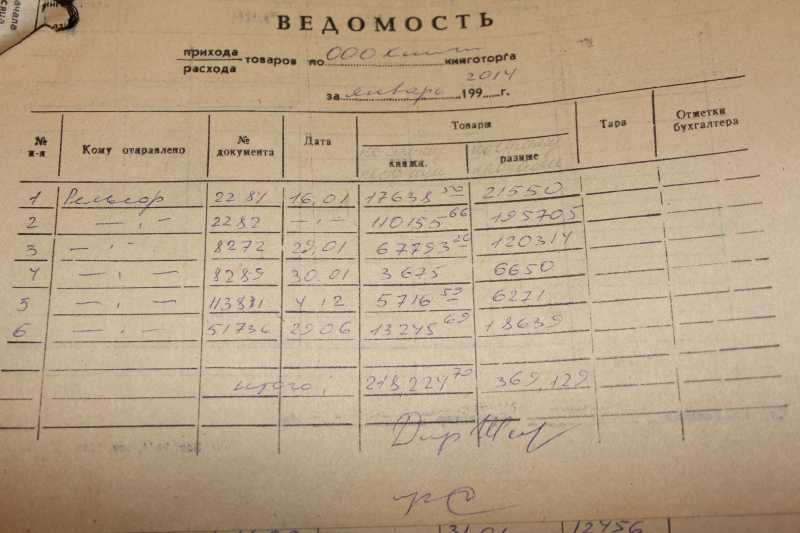 ВЕДОМОСТЬ
прихода
расхода товаров по ООО книготорга
за январь 2014 199 г.
№ п-п Кому отправлено № документа Дата Товары Тара Отметки бухгалтера
книжн. разные
1 2281 16,01 17638 50 21550
2 —„— 2282 —„— 110155 66 195705
3 —„— 8272 29,01 67793 20 120314
4 —„— 8289 30.01 3675 6650
5 —„— 4,12 5716 59 6271
6 —„— 51736 29.06 13245 69 18639
итого: 218,224 70 369,129
Дир
31.01 12456